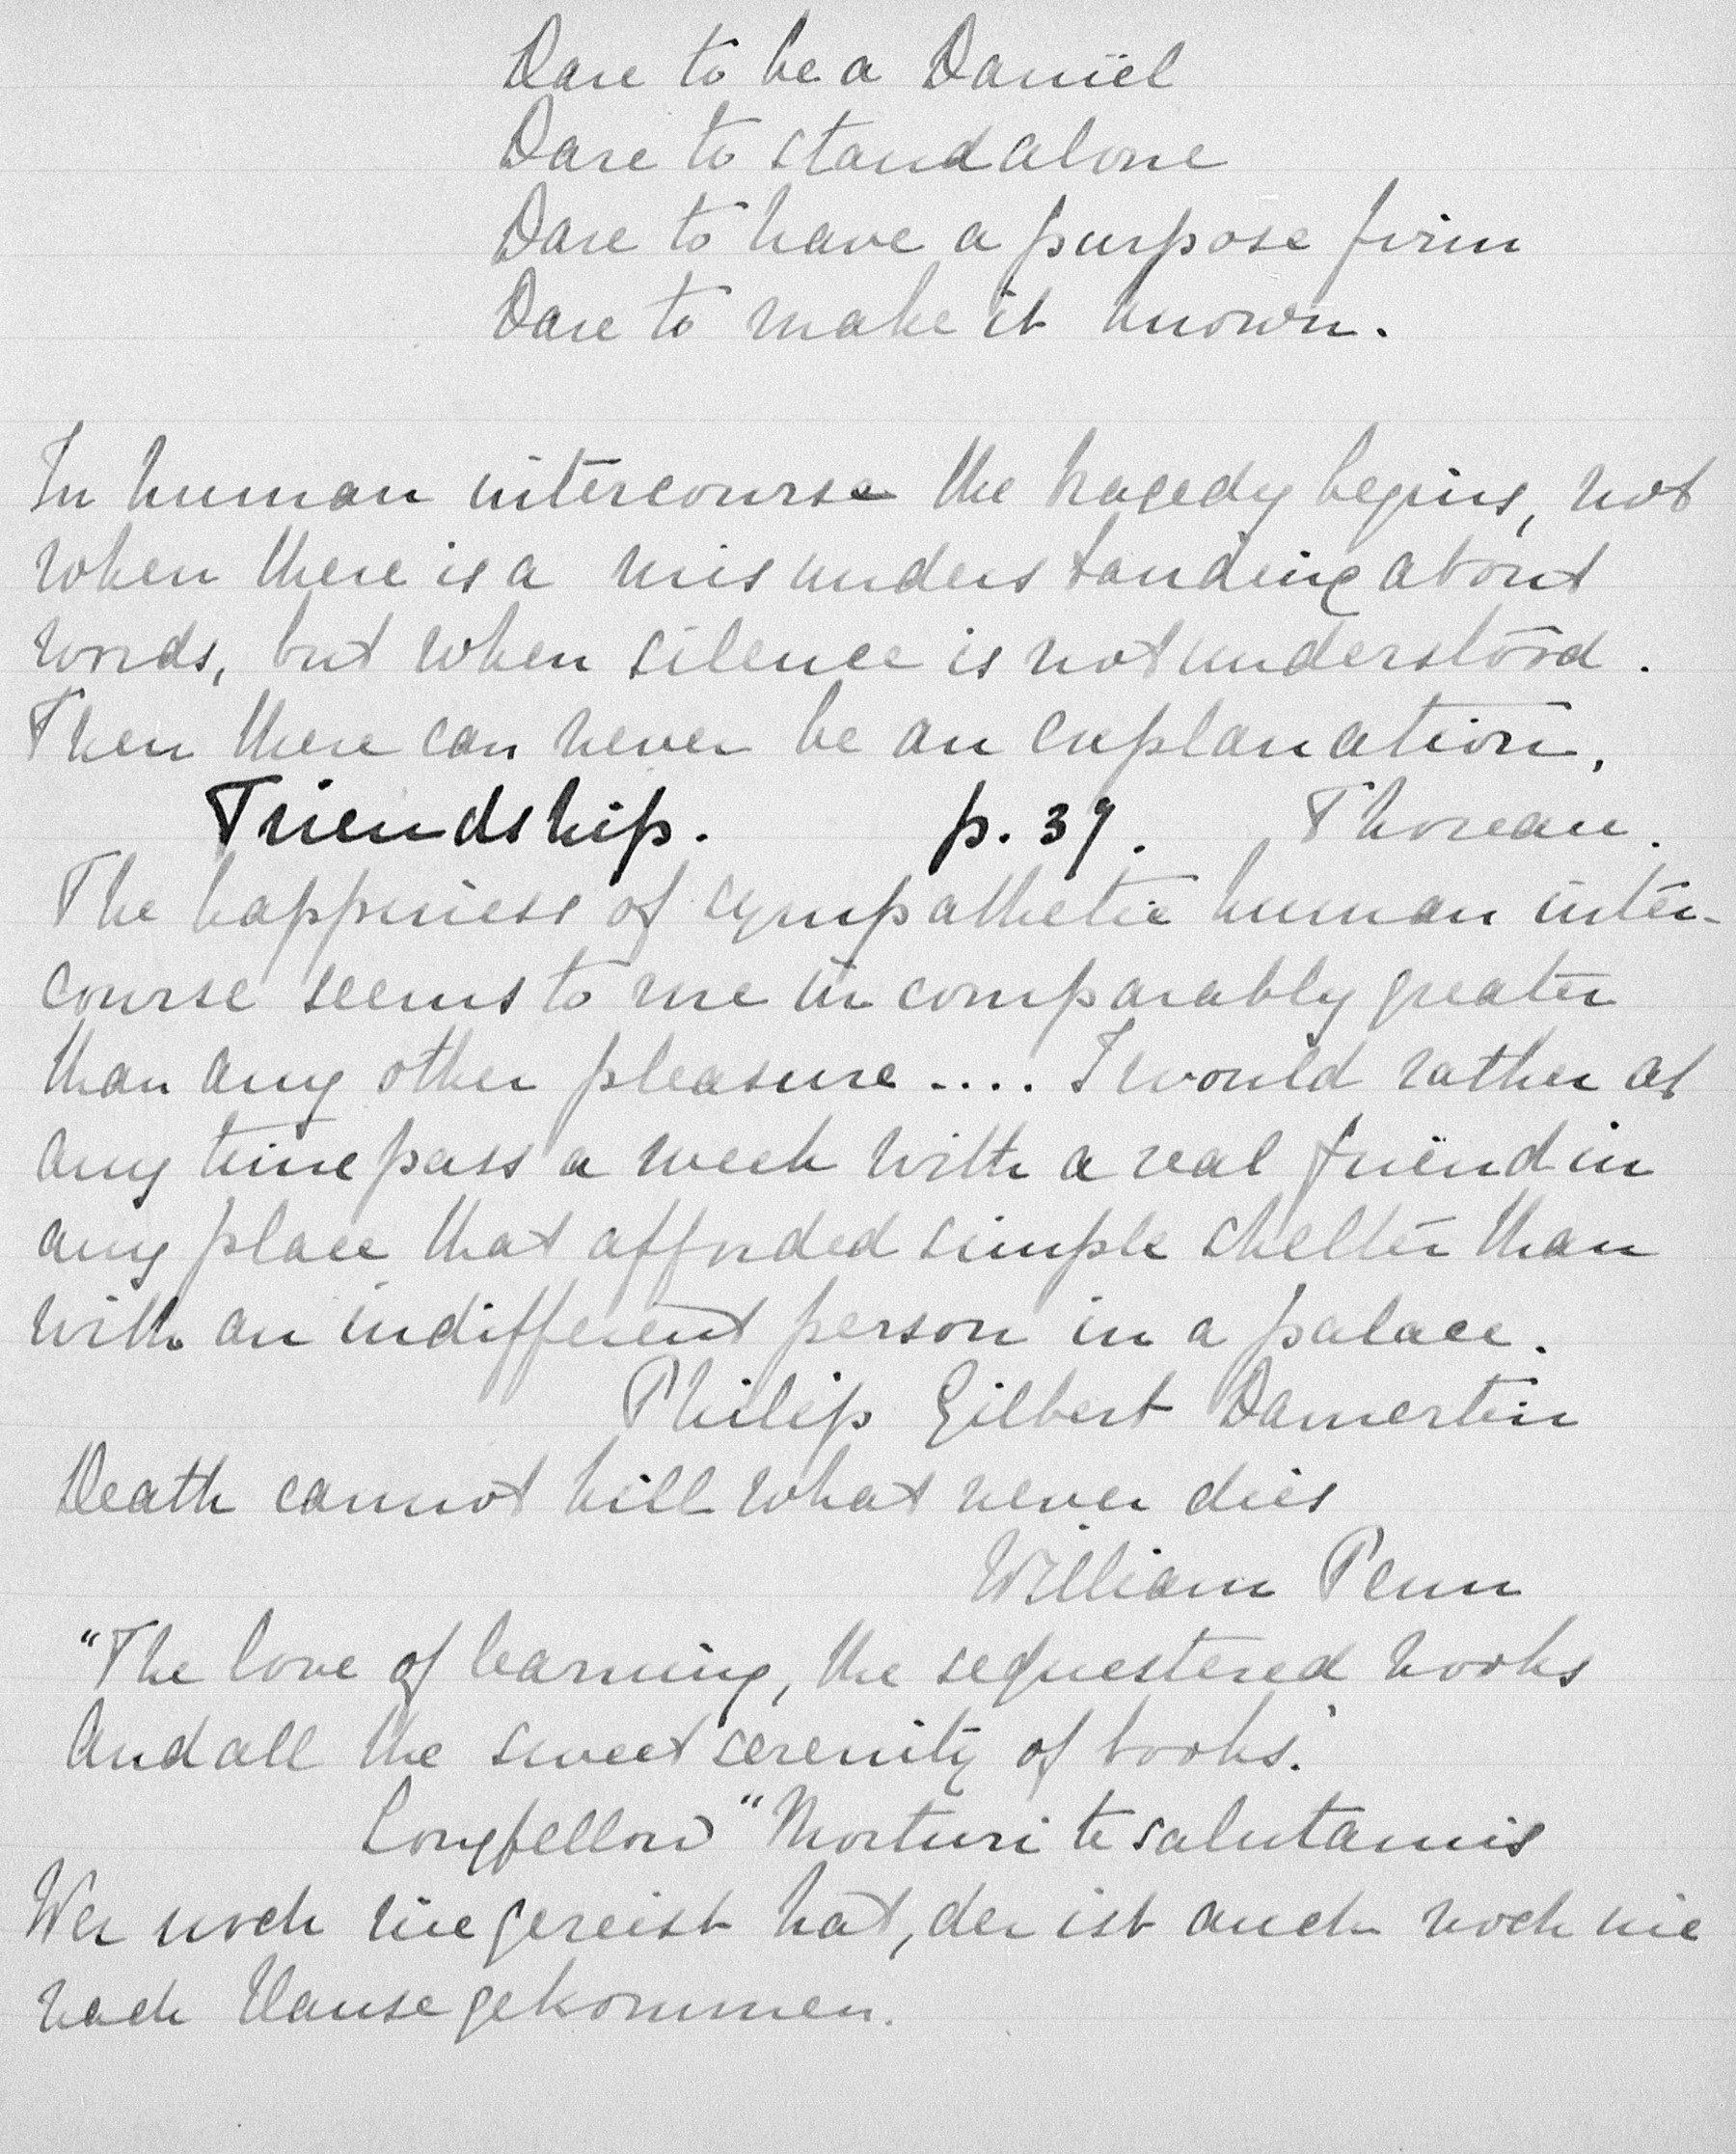 Dare to be a Daniel
Dare to stand alone
Dare to have a purpose firm
Dare to make it known.
In human intercourse the tragedy begins, not
when there is a misunderstanding about
words, but when silence is not understood.
Then there can never be an explanation.
Friendship. p. 39. Thoreau.
The happiness of sympathetic human inter-
course seems to me incomparably greater
than any other pleasure .... I would rather at
any time pass a week with a real friend in
any place that afforded simple shelter than
with an indifferent person in a palace.
Philip Gilbert Damerton
Death cannot kill what never dies
William Penn
"The love of learning, the sequestered nooks
And all the sweet serenity of books."
Longfellow "Morturi te salutamis
Wer noch nie gereist hat, der ist auch noch nie
nach Hause gekommen.